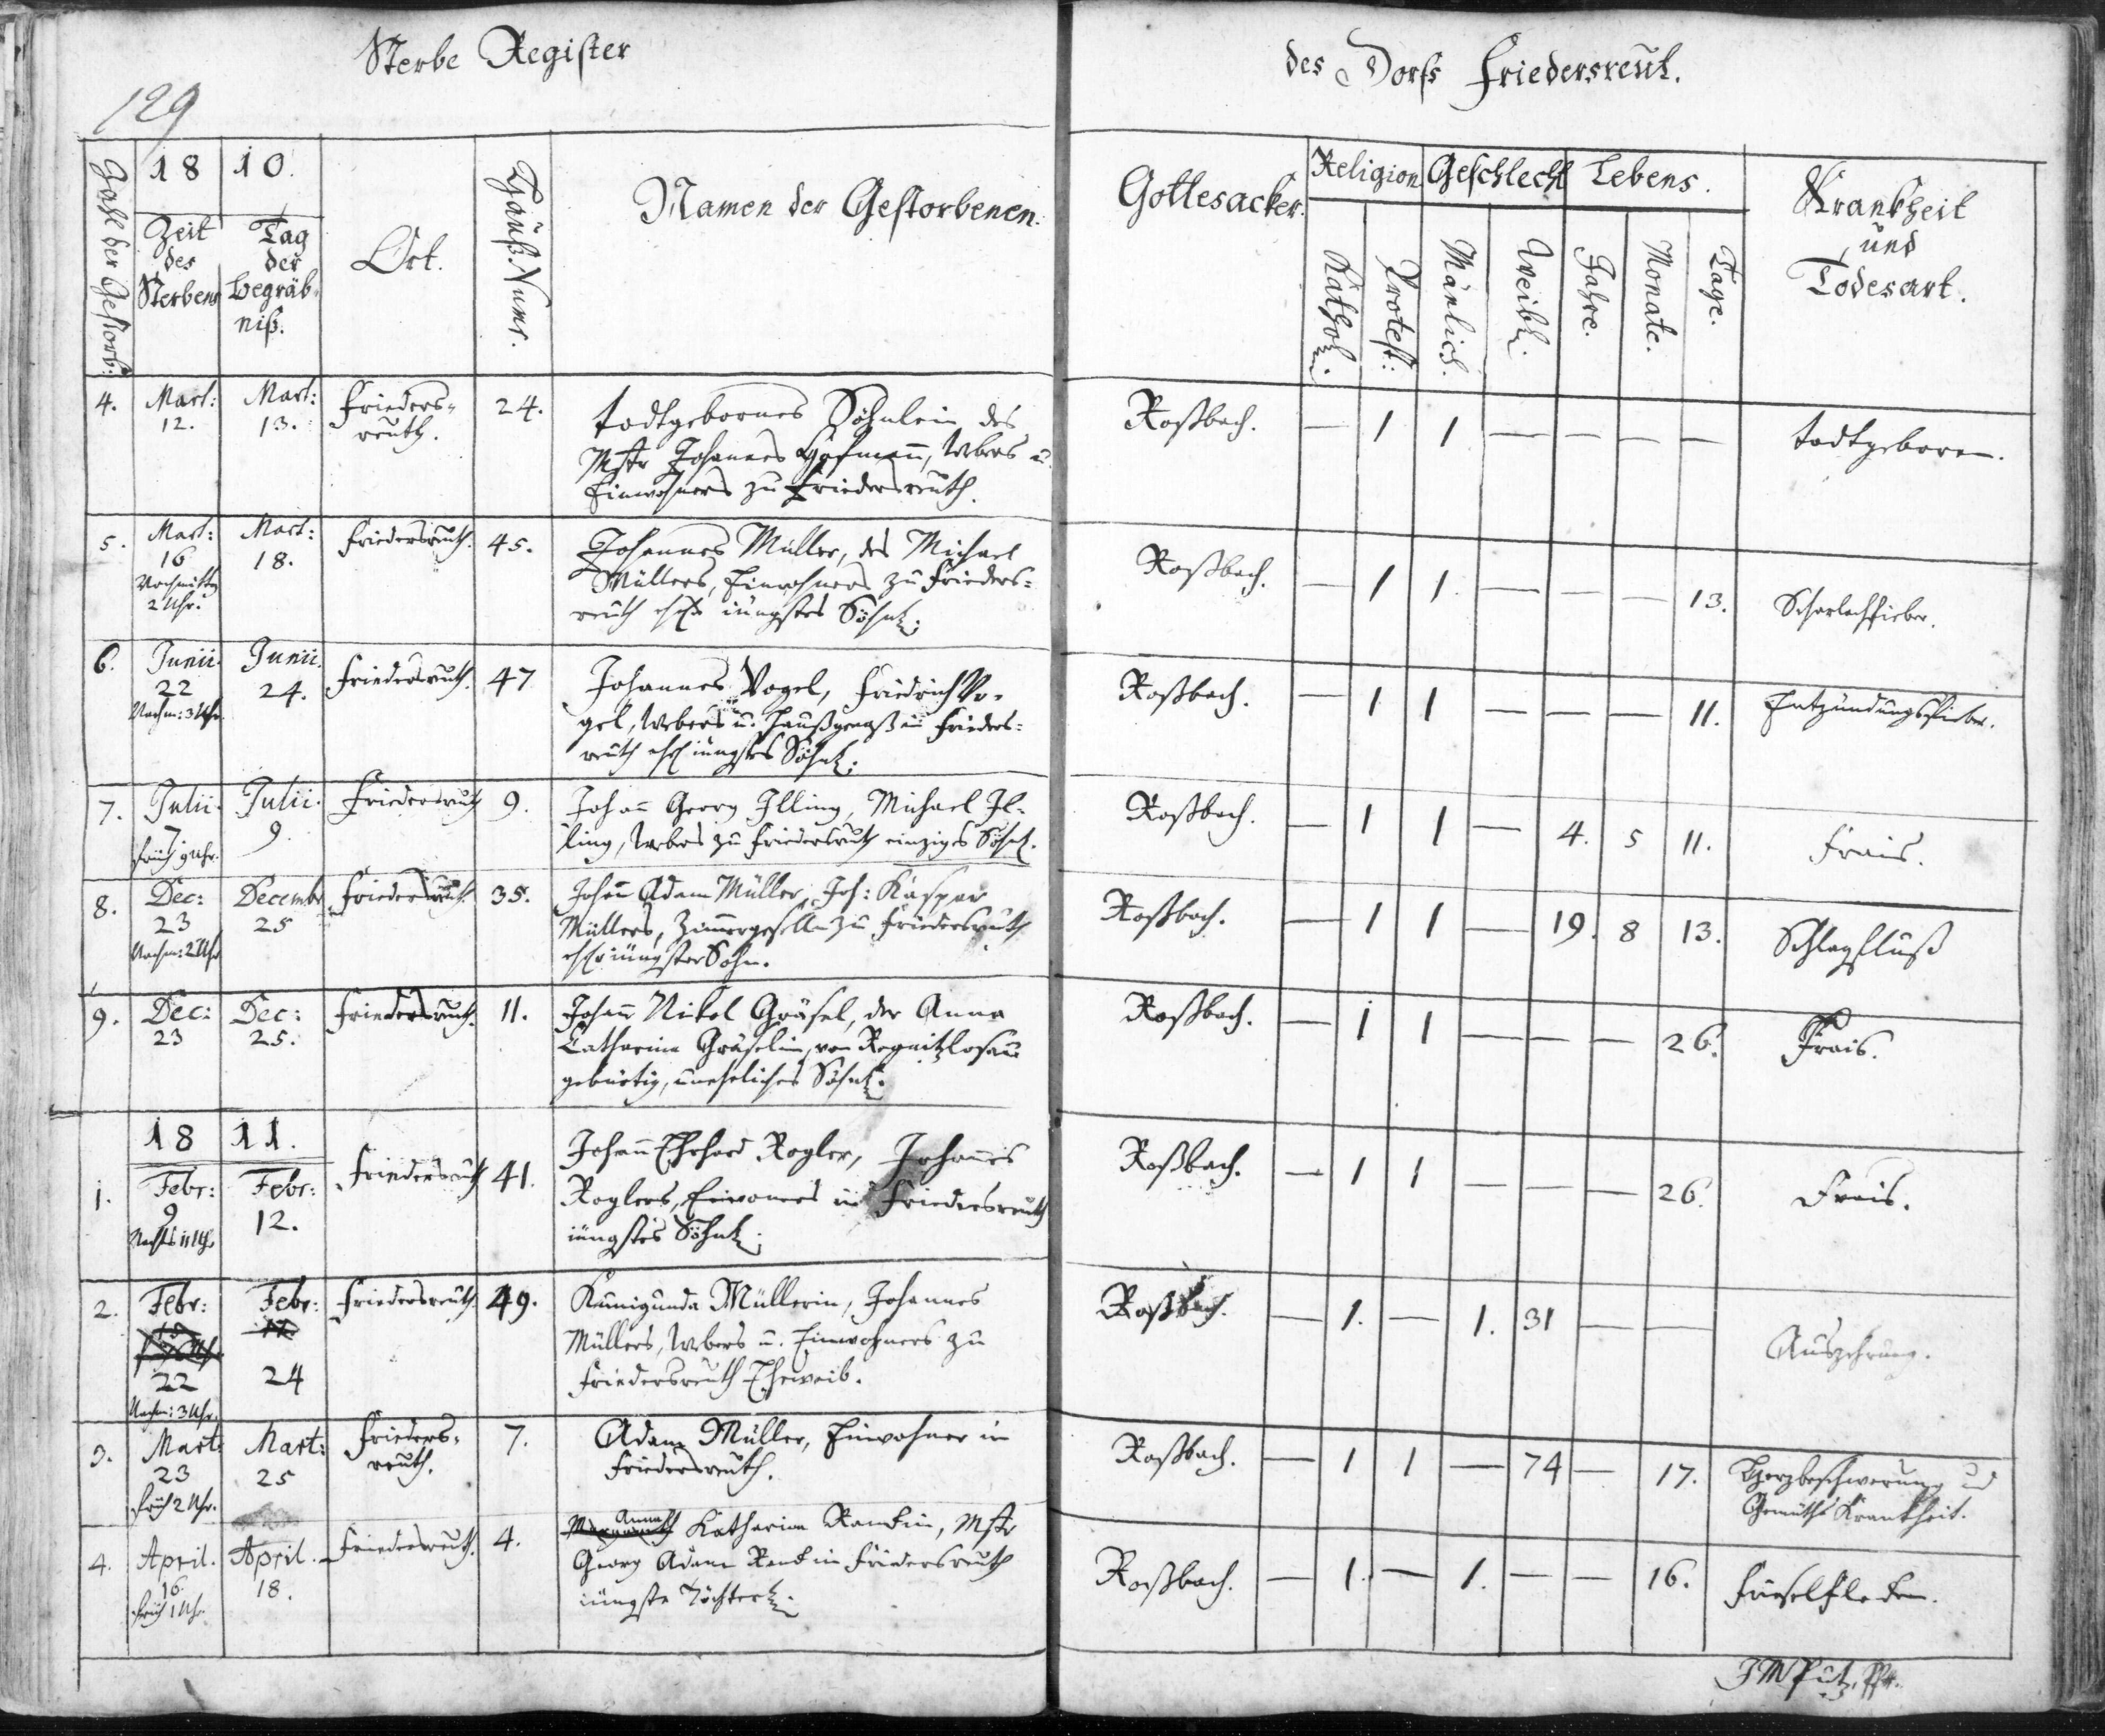 Sterbe Register
des Dorfs Friedersreut.
129
Zahl der Gestorb:
18 10.
Zeit des Sterbens
Tag der Begräbniß.
Ort.
Hauß Numr.
Namen der Gestorbenen.
Gottesacker.
Religion
Kathol.
Protest:
Geschlecht
Mänlich.
Weibl.
Lebens.
Jahre.
Monate.
Tage.
Krankheit
und
Todesart.
4. Mart: Mart: Frieders= 24. todtgebornes Söhnlein des Roßbach. — 1 1 — — — — todtgeboren.
12. 13. reuth. Mstr Johannes Hofmann, Webers u.
Einwohners zu Friedersreuth.
5. Mart: Mart: Friedersreuth. 45. Johannes Müller, des Michael Roßbach. — 1 1. — — — 13. Scharlachfieber.
16 18. Müllers, Einwohners zu Frieders=
Nachmittag reuth jüngstes Söhnl.
2 Uhr.
6. Junii. Junii. Friedersreuth. 47 Johannes Vogel, Friedrich Vo= Roßbach. — 1 1 — — — 11. Entzündungsfieber.
22 24. gel, Webers u. Haußgenoß in Frieders=
Nachm: 3 Uhr. reuth jüngstes Söhnl.
7. Julii. Julii. Friedersreuth 9. Johann Georg Illing, Michael Il= Roßbach. — 1 1 — 4. 5 11. Frais.
7 9. ling, Webers zu Friedersreuth einziges Söhnl.
früh 9 Uhr.
8. Dec: Decembr Friedersreuth. 35. Johann Adam Müller, Joh: Kaspar Roßbach. — 1 1 — 19. 8 13. Schlagfluß
23 25 Müllers, Zimmergeselle zu Friedersreuth
Nachm: 2 Uhr jüngster Sohn.
9. Dec: Dec: Friedersreuth. 11. Johann Nikol Gräsel, der Anna Roßbach. — 1 1 — — — 26. Frais.
23 25. Catharina Gräselin, von Regnitzlosau
gebürtig, uneheliches Söhnl.
18 11.
1. Febr: Febr: Friedersreuth 41. Johann Ehrhard Rogler, Johannes Roßbach. — 1 1 — — — 26. Frais.
9 12. Roglers, Einwoners in Friedersreuth
Nachts 11 Uhr jüngstes Söhnl.
2. Febr: Febr: Friedersreuth. 49. Kunigunda Müllerin, Johannes Roßbach. — 1. — 1. 31 — — Auszehrung.
22 24 Müllers, Webers u. Einwohners zu
Nachm: 3 Uhr. Friedersreuth Eheweib.
3. Mart: Mart: Frieders= 7. Adam Müller, Einwohner in Roßbach. — 1 1 — 74 — 17. Herzbeschwerung und
23 25 reuth. Friedersreuth. Gemüths Krankheit.
früh 2 Uhr.
4. April. April. Friedersreuth. 4. Anna Katharina Rankin, Mstr Roßbach. — 1. — 1. — — 16. Frieselflecken.
16. 18. Georg Adam Rank in Friedersreuth
früh 1 Uhr. jüngste Töchterl.